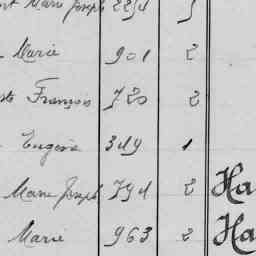 Marie Joseph
Marie 901 2
François 720 2
Eugène 349 1
Marie Joseph 2 Ha
Marie 963 2 Ha